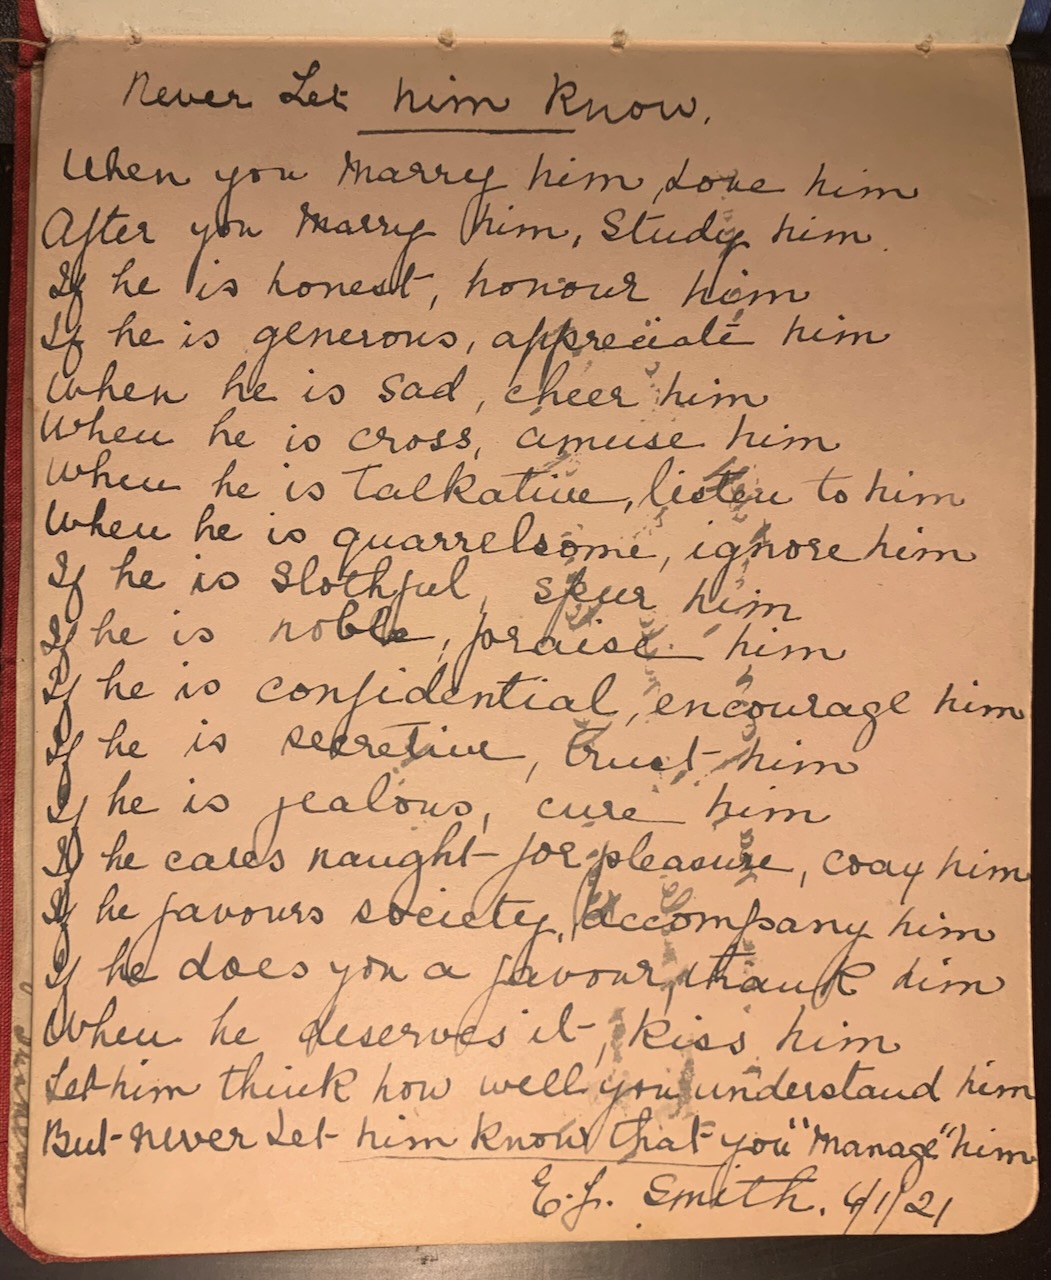 Never Let him Know.
When you Marry him, Love him
After you Marry him, Study him.
If he is honest, honour him
If he is generous, appreciate him
When he is sad, cheer him
When he is cross, amuse him
When he is talkative, listen to him
When he is quarrelsome, ignore him
If he is slothful, spur him
If he is noble, praise him
If he is confidential, encourage him
If he is secretive, trust him
If he is jealous, cure him
If he cares naught for pleasure, coax him
If he favours society, accompany him
If he does you a favour, thank him
When he deserves it, kiss him
Let him think how well you understand him
But never Let him know that you "Manage" him
E.J. Smith. 6/1/21